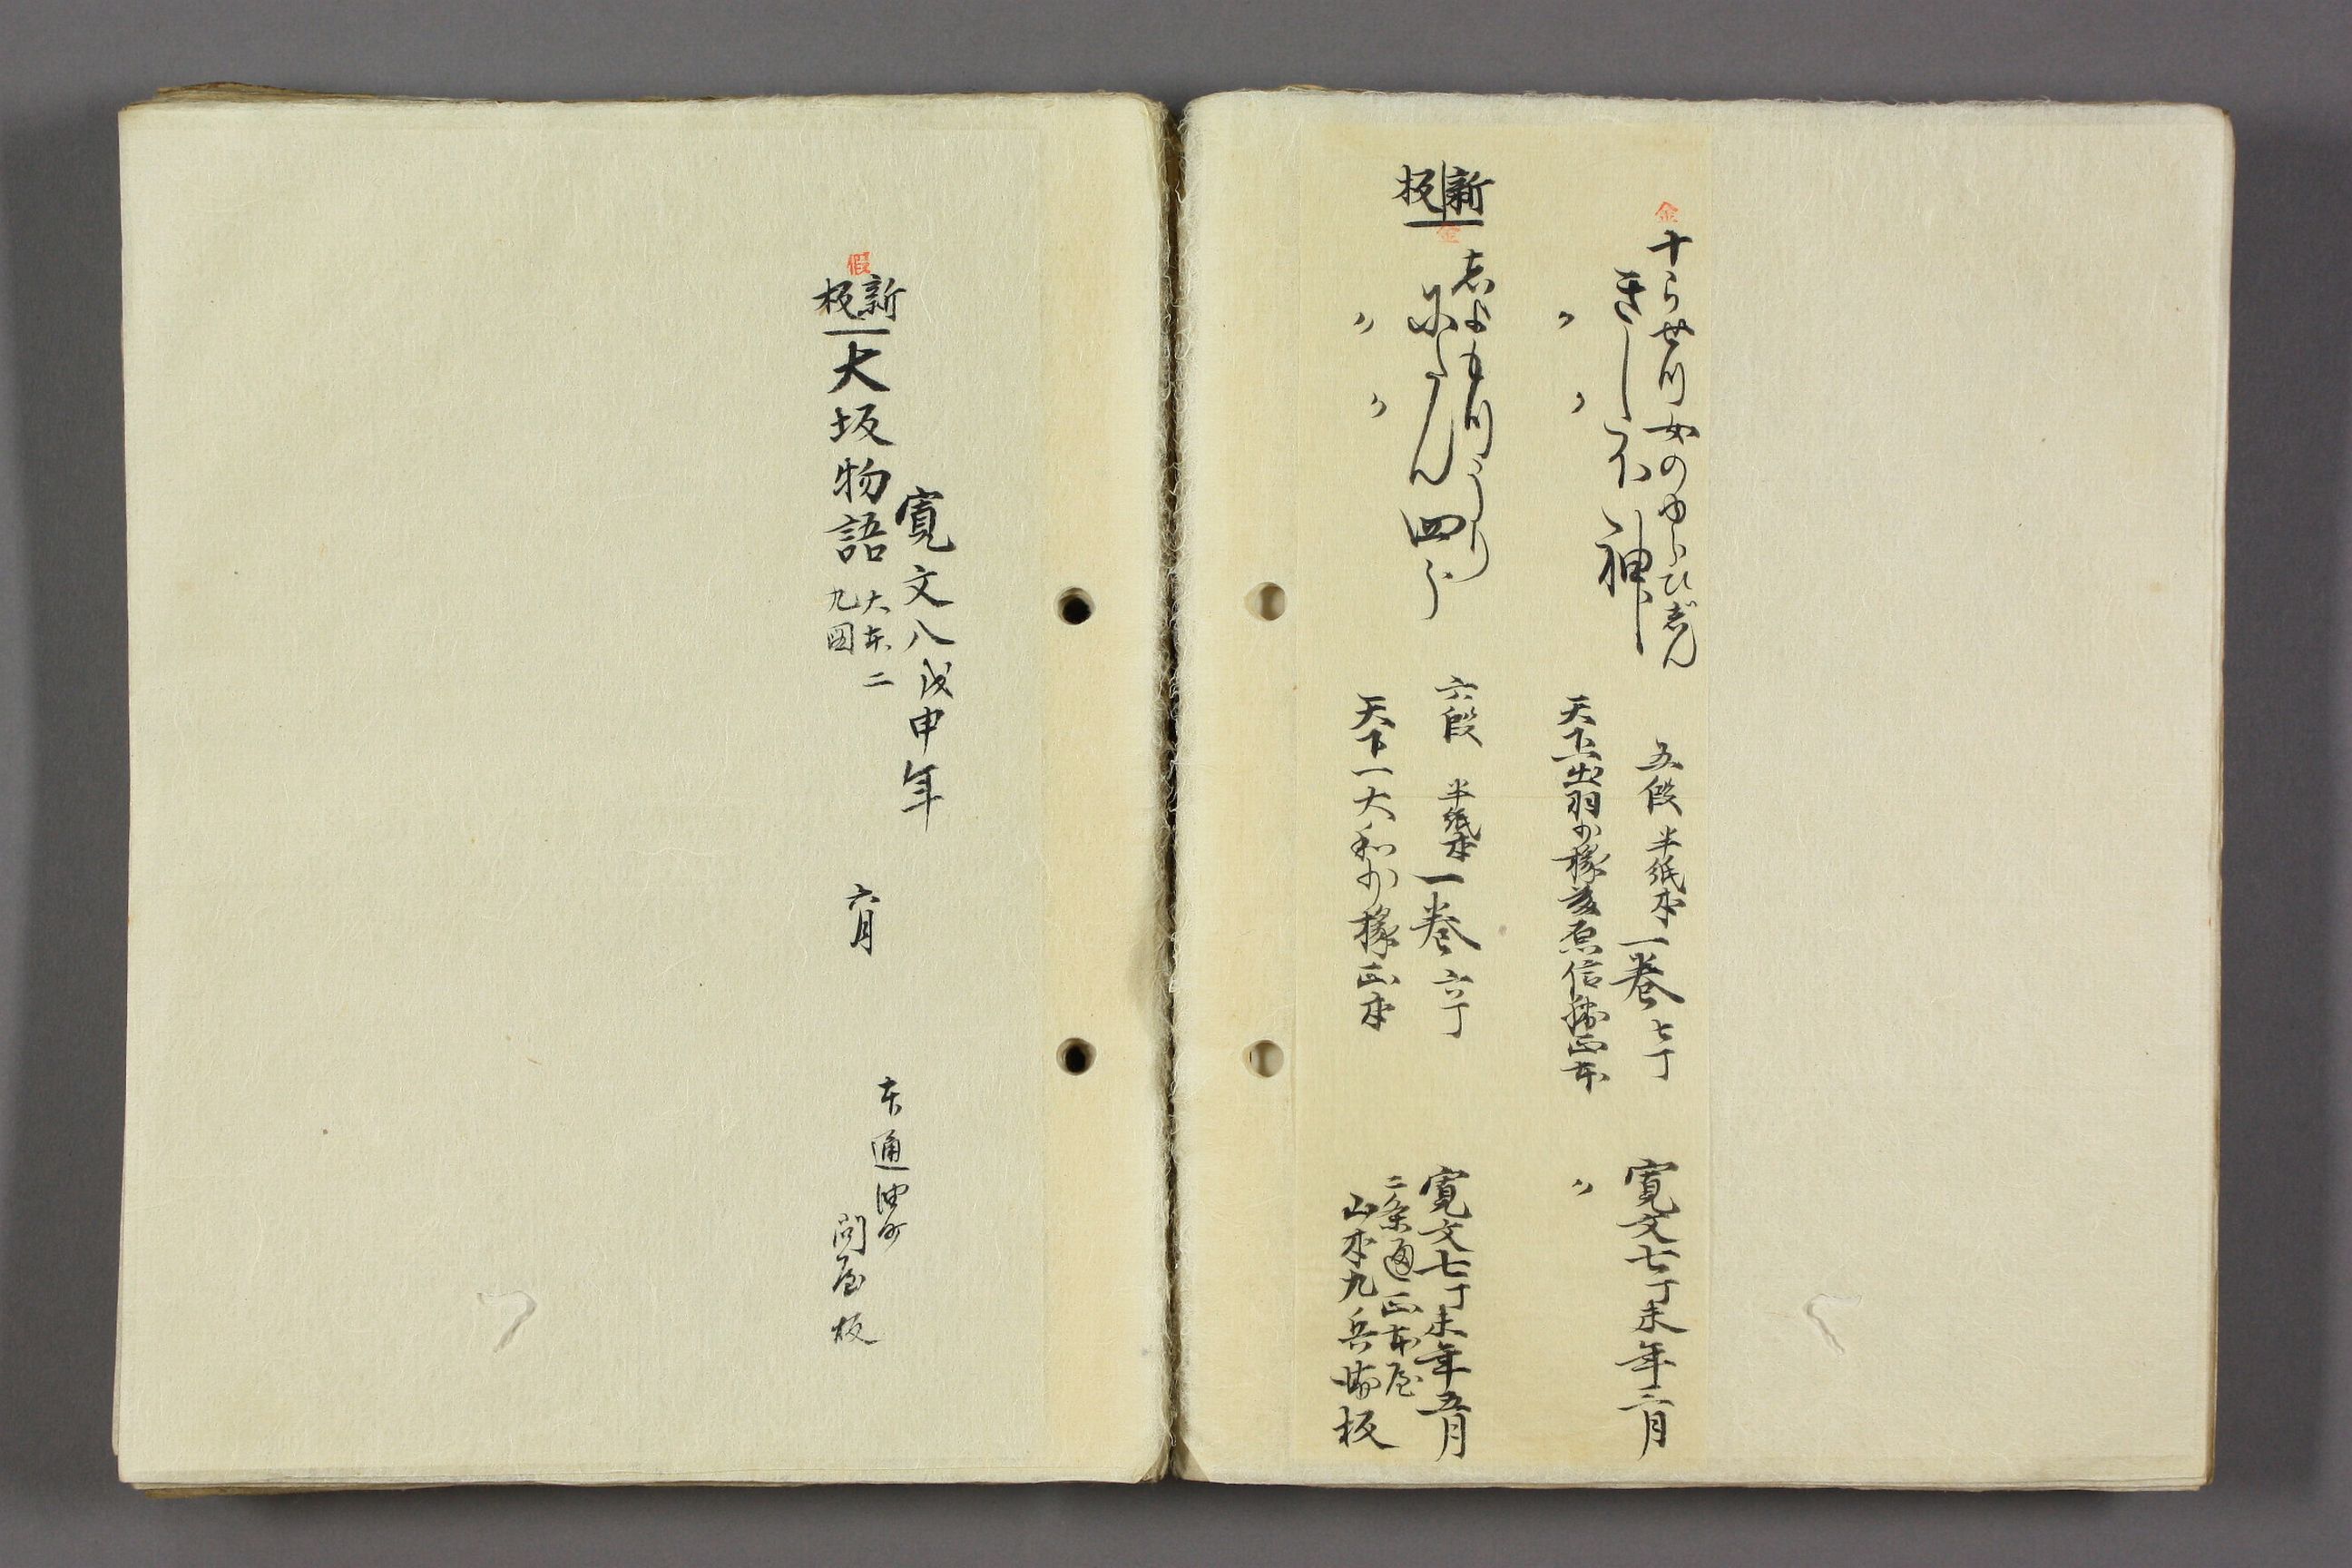 金
十らせ川女のゆくひじん
きし不神
〃 〃
五段 半紙本 一巻 七丁
天下一出羽少掾藤原信勝正本
寛文七丁未年三月
〃
新板
金
六段 半紙本 一巻 六丁
天下一大和少掾正本
〃 〃
寛文七丁未年五月
二条通正本屋
山本九兵衛板
假
新板
寛文八戊申年
大坂物語 大本二 九図
六月
本通油町
問屋板